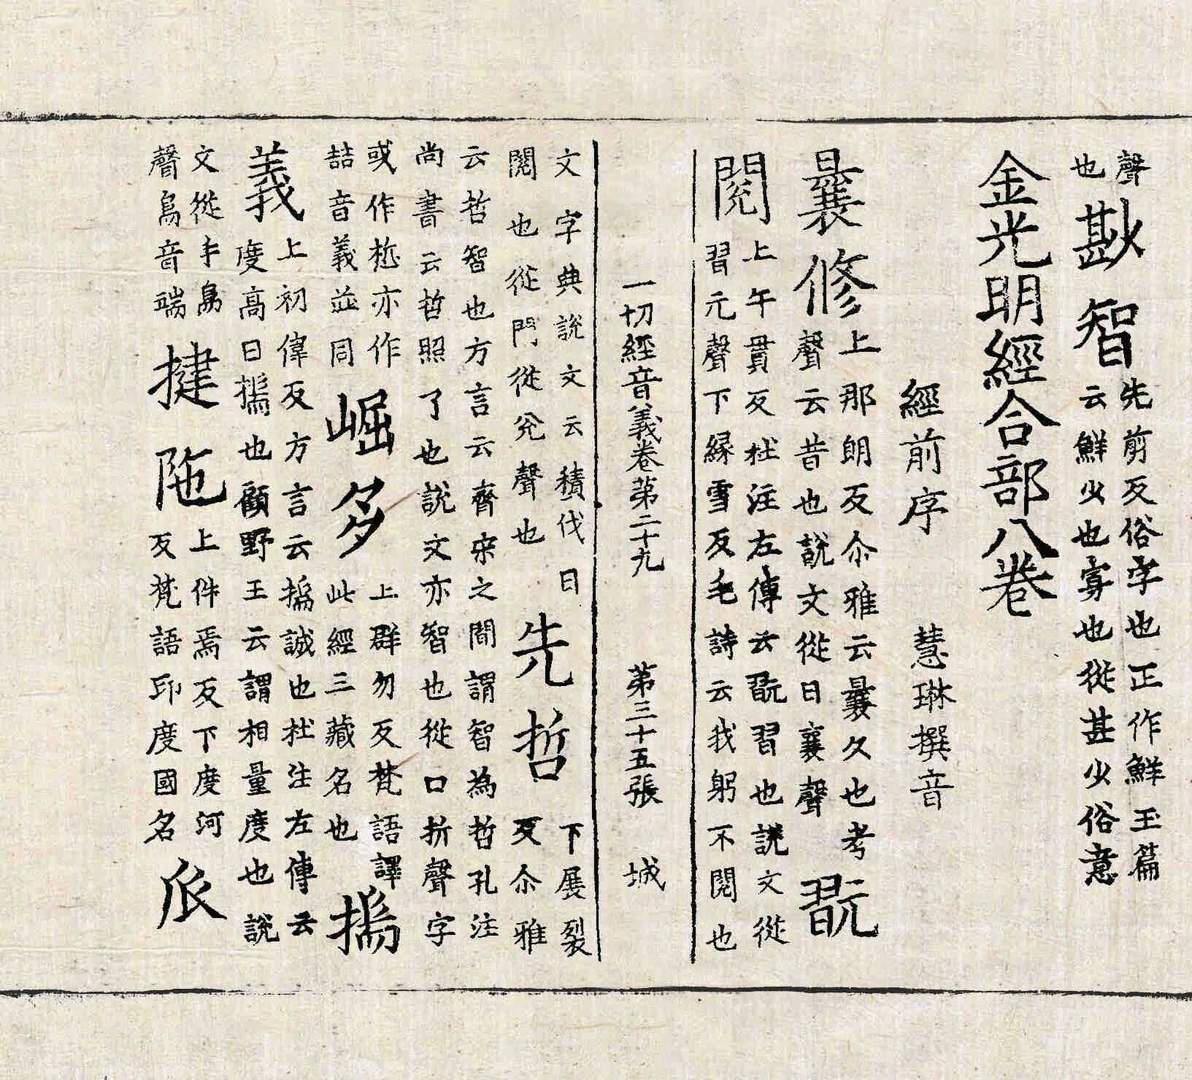 聲也尠智先剪反俗字也正作鮮玉篇云鮮少也寡也從甚少俗意
金光明經合部八卷
經前序　慧琳撰音
曩修上那朗反尒雅云曩久也考聲云昔也說文從日襄聲翫
閱上午貫反杜注左傳云翫習也說文從習元聲下緣雪反毛詩云我躬不閱也
一切經音義卷第二十九　第三十五張　城
文字典說文云積伐日閱也從門從兊聲也先哲下展裂反尒雅
云哲智也方言云齊宋之間謂智為哲孔注尚書云哲照了也說文亦智也從口折聲字
或作悊亦作喆音義並同崛多上群勿反梵語譯此經三藏名也揣
義上初偉反方言云揣誠也杜注左傳云度高曰揣也顧野王云謂相量度也說
文從手耑聲耑音端揵陁上件焉反下度河反梵語印度國名𠂢